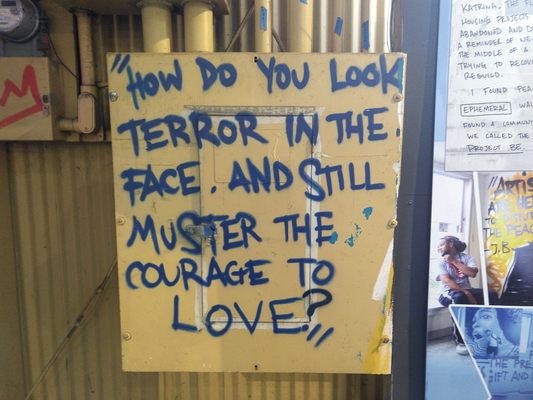 "HOW DO YOU LOOK
TERROR IN THE.
FACE. AND STILL
MUSTER THE
COURAGE TO
LOVE?"
KATRINA. THE FL
HOUSING PROJECTS
ABANDONED AND D
A REMINDER OF WE
THE MIDDLE OF A
TRYING TO RECOV
REBUILD.
I FOUND PEA
EPHEMERAL WAL
FOUND A COMMUN
WE CALLED THE
PROJECT BE.
"ARTIS
ARE HE
TO DISTU
THE PEAC
J.B.
THE PRE
GIFT AND